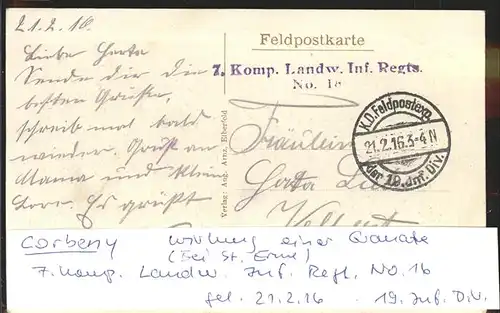 21.2.16.
Liebe Herta
Sende dir die
besten Grüße,
schreib mal bald
wieder. Gruß an
Mama und klein
Es grüßt
Verlag: Aug. Arnz, Elberfeld
Feldpostkarte
7. Komp. Landw. Inf. Regts.
No. 16
Fräulein
K.D. Feldpostexp.
21.2.16.3-4 N
der 19. Inf. Div.
Corbeny Wirkung einer Granate
(Bei St. Erme)
7. Komp. Landw. Inf. Regt. No. 16
gel. 21.2.16 19. Inf. D.V.